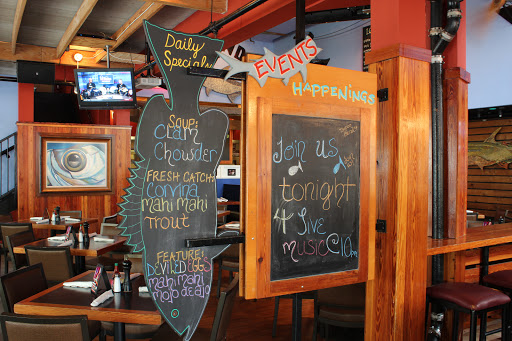 Daily
Specials
SOUP:
Clam
Chowder
FRESH CATCH:
Corvina
Mahi Mahi
Trout
FEATURE!
DEVILED EGGS
Mahi Mahi
EVENTS
HAPPENINGS
Join us
tonight
4 Live
music @10pm